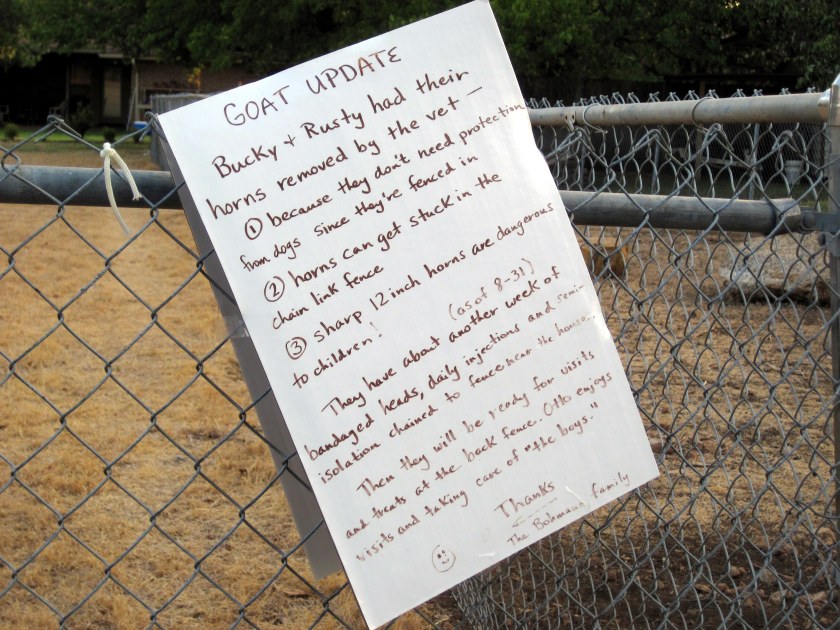 GOAT UPDATE
Bucky + Rusty had their
horns removed by the vet —
① because they don't need protection
from dogs since they're fenced in
② horns can get stuck in the
chain link fence
③ sharp 12 inch horns are dangerous
to children!
(as of 8-31)
They have about another week of
bandaged heads, daily injections and semi-
isolation chained to fence near the house.
Then they will be ready for visits
and treats at the back fence. Otto enjoys
visits and taking care of "the boys."
Thanks
The Bohmann family